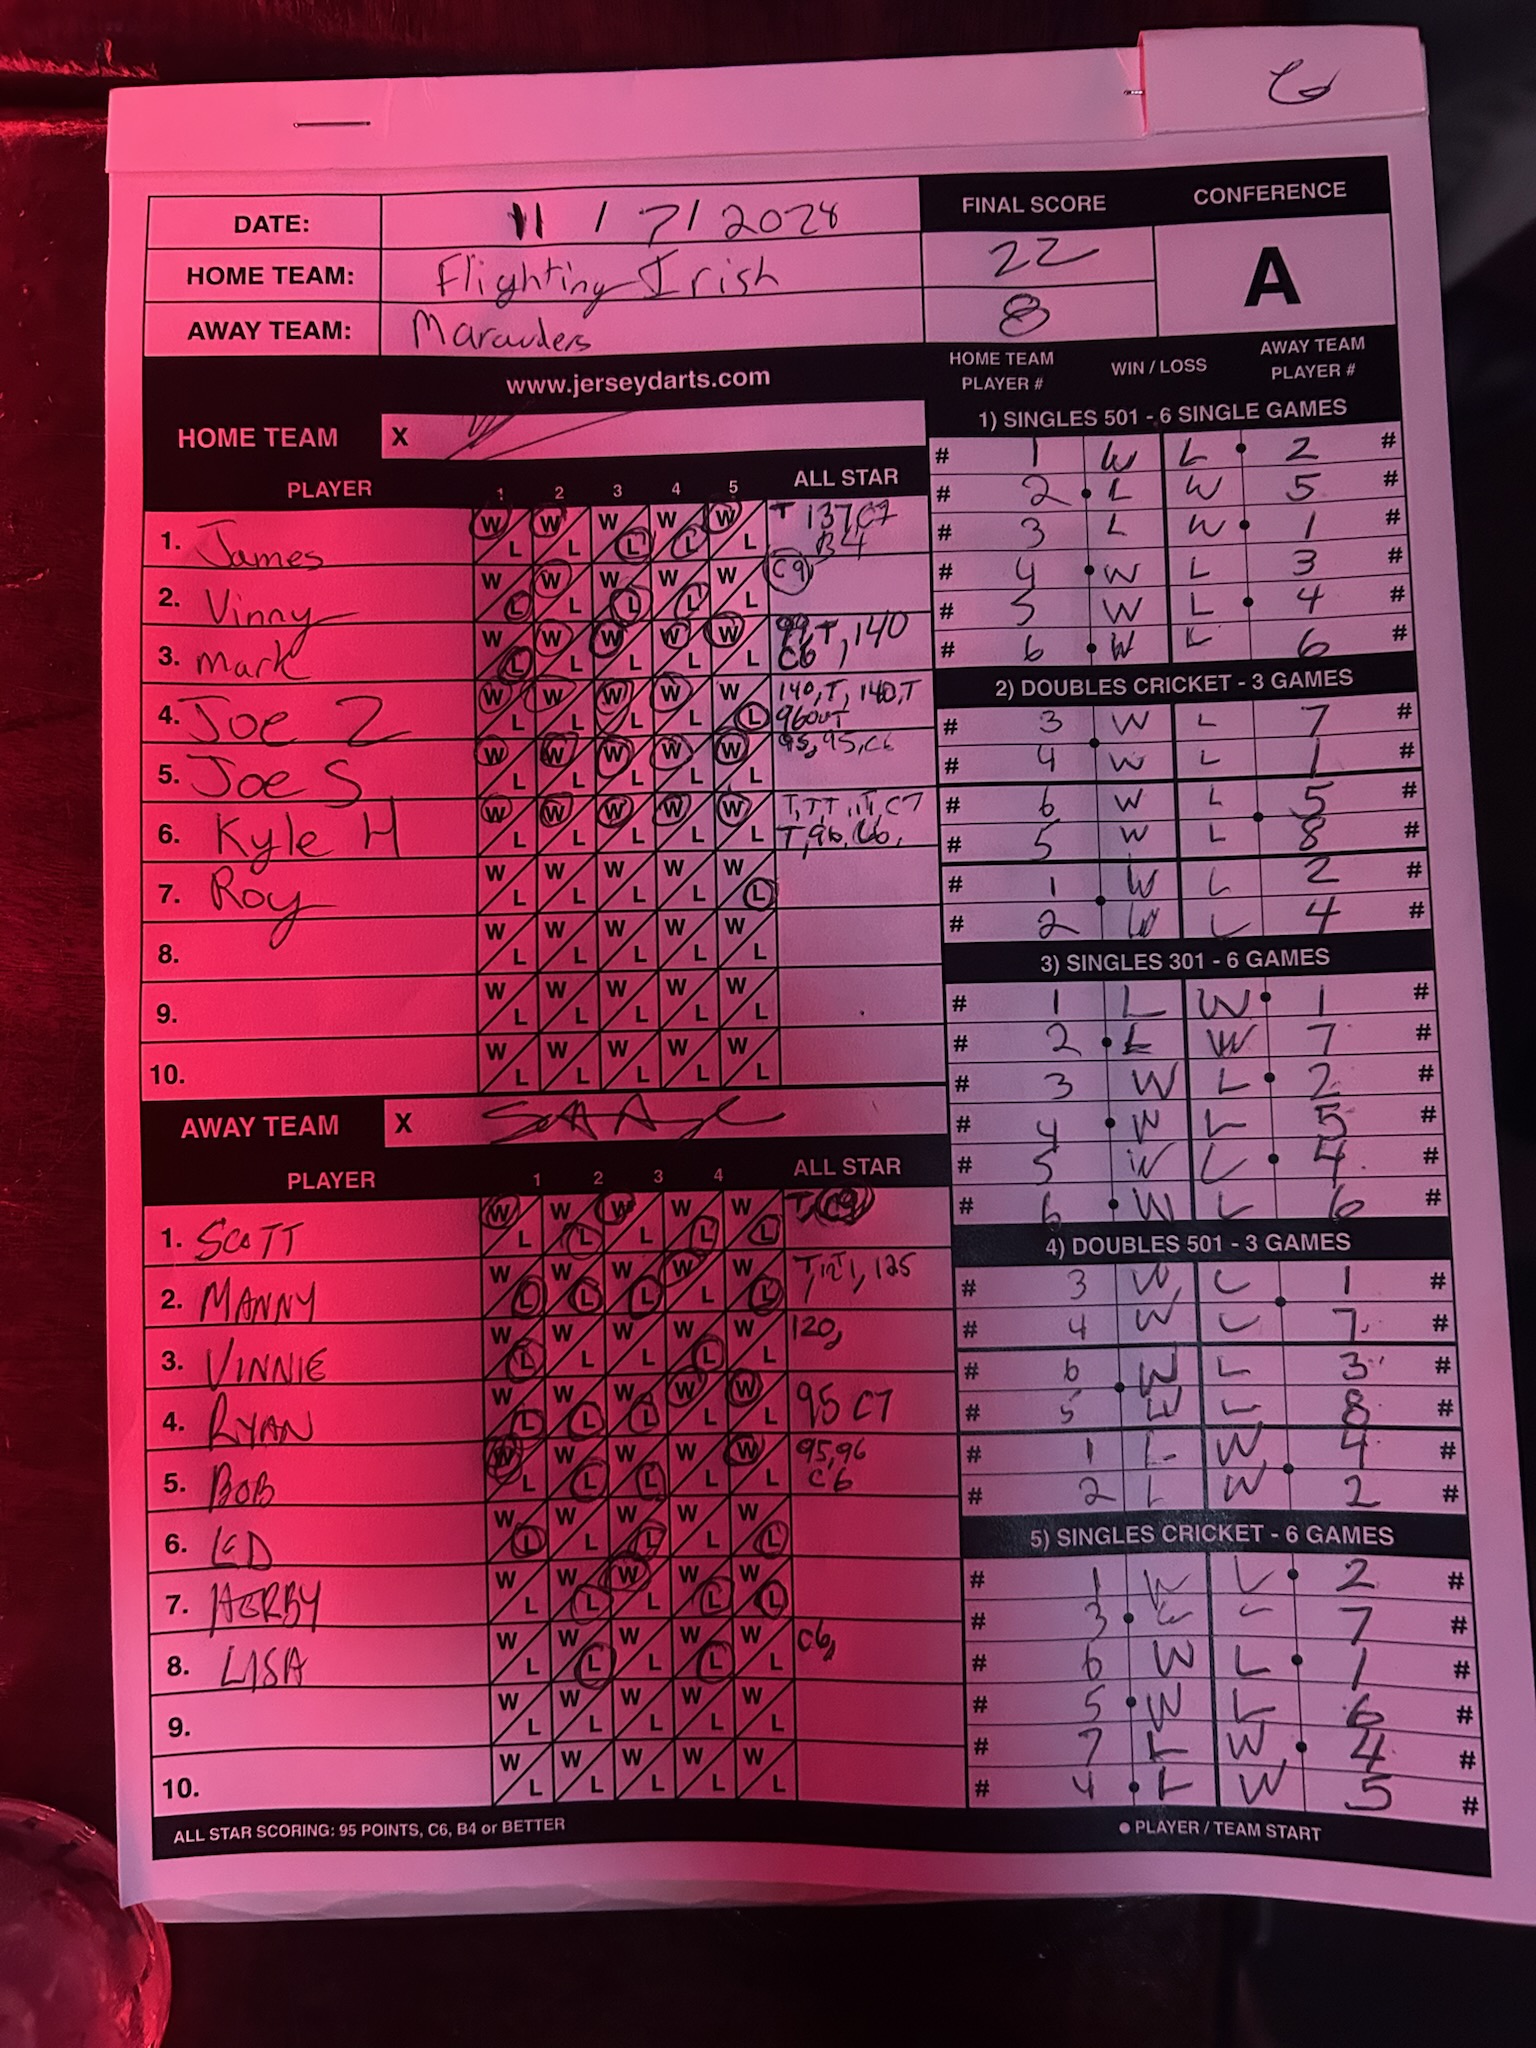 6
DATE: 11 / 7 / 2028 FINAL SCORE CONFERENCE
HOME TEAM: Flighting Irish 22 A
AWAY TEAM: Marauders 8
www.jerseydarts.com
HOME TEAM X
PLAYER 1 2 3 4 5 ALL STAR
1. James W L W L W L W L W L T 137, C7 B4
2. Vinny W L W L W L W L W L C9
3. Mark W L W L W L W L W L 99, T, 140 C6
4. Joe Z W L W L W L W L W L 140, T, 140, T 96OUT
5. Joe S W L W L W L W L W L 95, 95, C6
6. Kyle H W L W L W L W L W L T, 96, C6,
7. Roy W L W L W L W L W L
8. W L W L W L W L W L
9. W L W L W L W L W L
10. W L W L W L W L W L
AWAY TEAM X
PLAYER 1 2 3 4 ALL STAR
1. SCOTT W L W L W L W L W L T, C9
2. MANNY W L W L W L W L W L 125
3. VINNIE W L W L W L W L W L 120,
4. RYAN W L W L W L W L W L 95 C7
5. BOB W L W L W L W L W L 95, 96 C6
6. ED W L W L W L W L W L
7. HERBY W L W L W L W L W L
8. LISA W L W L W L W L W L C6,
9. W L W L W L W L W L
10. W L W L W L W L W L
ALL STAR SCORING: 95 POINTS, C6, B4 or BETTER
HOME TEAM PLAYER # WIN / LOSS AWAY TEAM PLAYER #
1) SINGLES 501 - 6 SINGLE GAMES
# 1 W L 2 #
# 2 L W 5 #
# 3 L W 1 #
# 4 W L 3 #
# 5 W L 4 #
# 6 W L 6 #
2) DOUBLES CRICKET - 3 GAMES
# 3 W L 7 #
# 4 W L 1 #
# 6 W L 5 #
# 5 W L 8 #
# 1 W L 2 #
# 2 W L 4 #
3) SINGLES 301 - 6 GAMES
# 1 L W 1 #
# 2 L W 7 #
# 3 W L 2 #
# 4 W L 5 #
# 5 W L 4 #
# 6 W L 6 #
4) DOUBLES 501 - 3 GAMES
# 3 W L 1 #
# 4 W L 7 #
# 6 W L 3 #
# 5 W L 8 #
# 1 L W 4 #
# 2 L W 2 #
5) SINGLES CRICKET - 6 GAMES
# 1 W L 2 #
# 3 L 7 #
# 6 W L 1 #
# 5 W L 6 #
# 7 L W 4 #
# 4 L W 5 #
● PLAYER / TEAM START